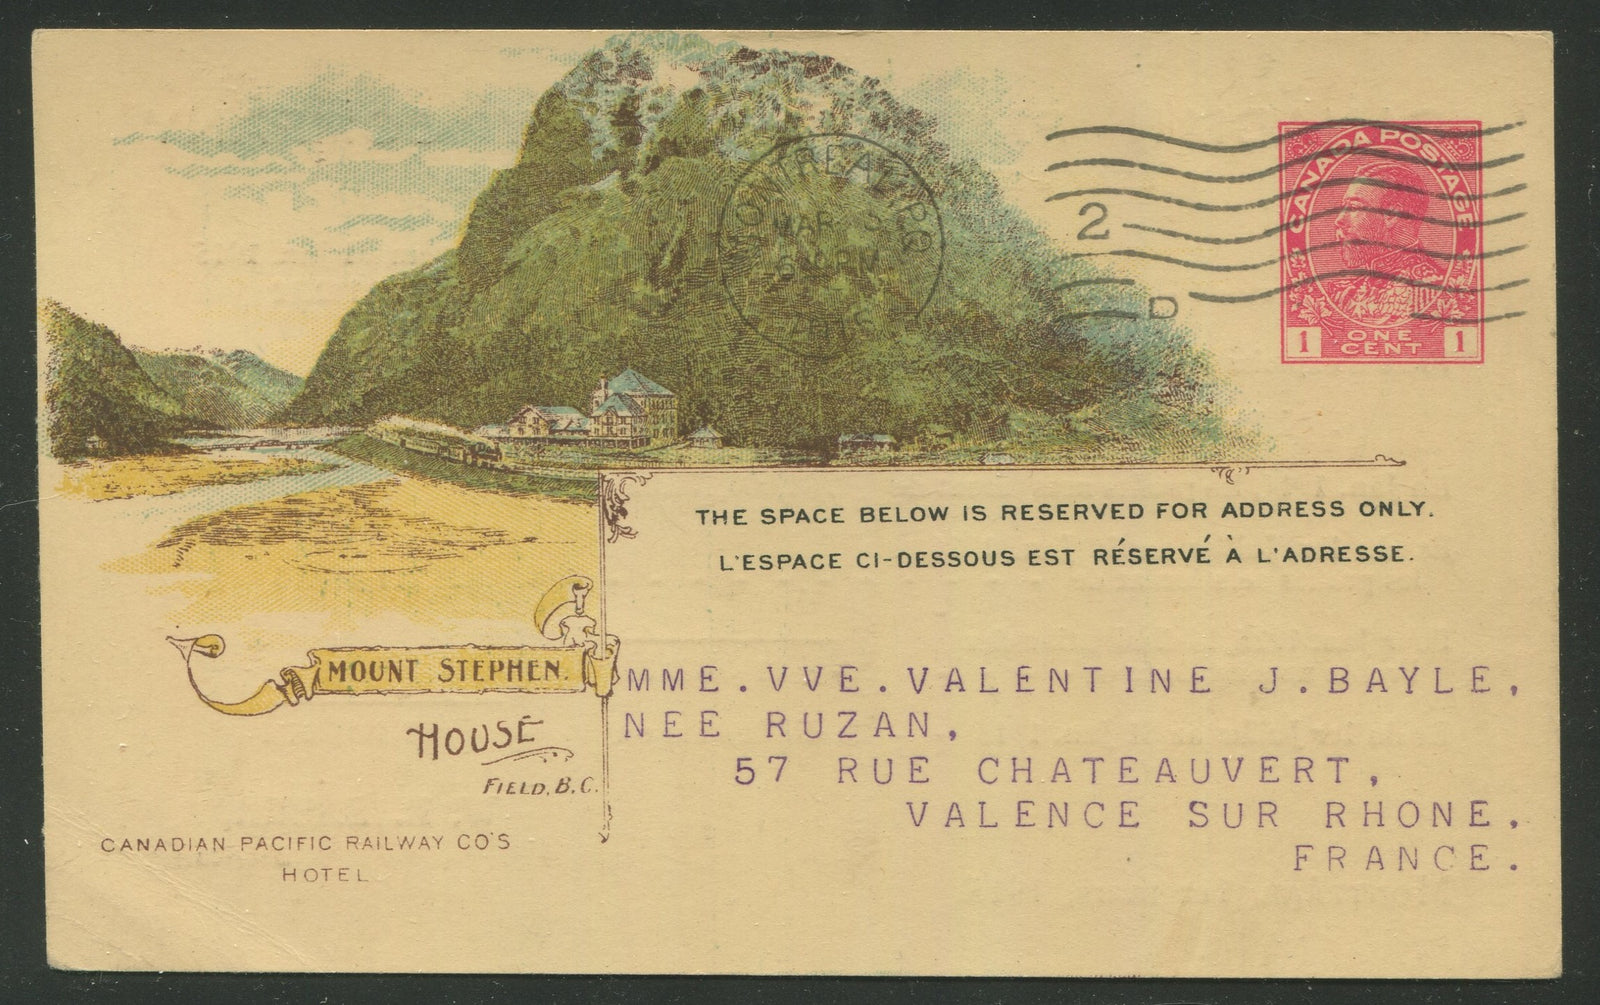 CANADA POSTAGE
1 ONE CENT 1
MONTREAL, P.Q.
MAR
PM
2
D
THE SPACE BELOW IS RESERVED FOR ADDRESS ONLY.
L'ESPACE CI-DESSOUS EST RÉSERVÉ À L'ADRESSE.
MOUNT STEPHEN.
HOUSE
FIELD, B.C.
CANADIAN PACIFIC RAILWAY CO'S
HOTEL
MME.VVE.VALENTINE J.BAYLE,
NEE RUZAN,
57 RUE CHATEAUVERT,
VALENCE SUR RHONE.
FRANCE.